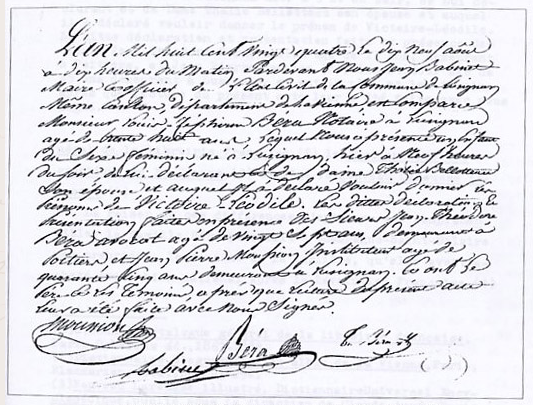 L'an Mil huit Cent Vingt quatre le dix neuf août
à dix heures du Matin Pardevant Nous Jean Babinet
Maire officier de L'Etat Civil de la Commune de Lusignan
Même Canton, département de la Vienne, est comparu
Monsieur Louis Zéphirin Béra Notaire à Lusignan
agé de trente huit ans Lequel Nous a présenté un Enfant
du Sexe féminin né à Lusignan, hier à Neuf heures
du soir de lui déclarant et de Dame
Son épouse et auquel il a déclaré Vouloir donner les
Prénoms de Victoire Léodile. Les dittes déclaration et
Présentation faites en présence des Sieurs Jean Théodore
Béra avocat agé de Vingt Sept ans, Demeurant à
Poitiers et Jean Pierre Mounion Instituteur agé de
quarante Cinq ans Demeurant à Lusignan. Et ont le
Père et Les Témoins, après que Lecture du présent acte
Leur a été faite avec Nous Signés.
Mounion
Babinet Béra T. Béra